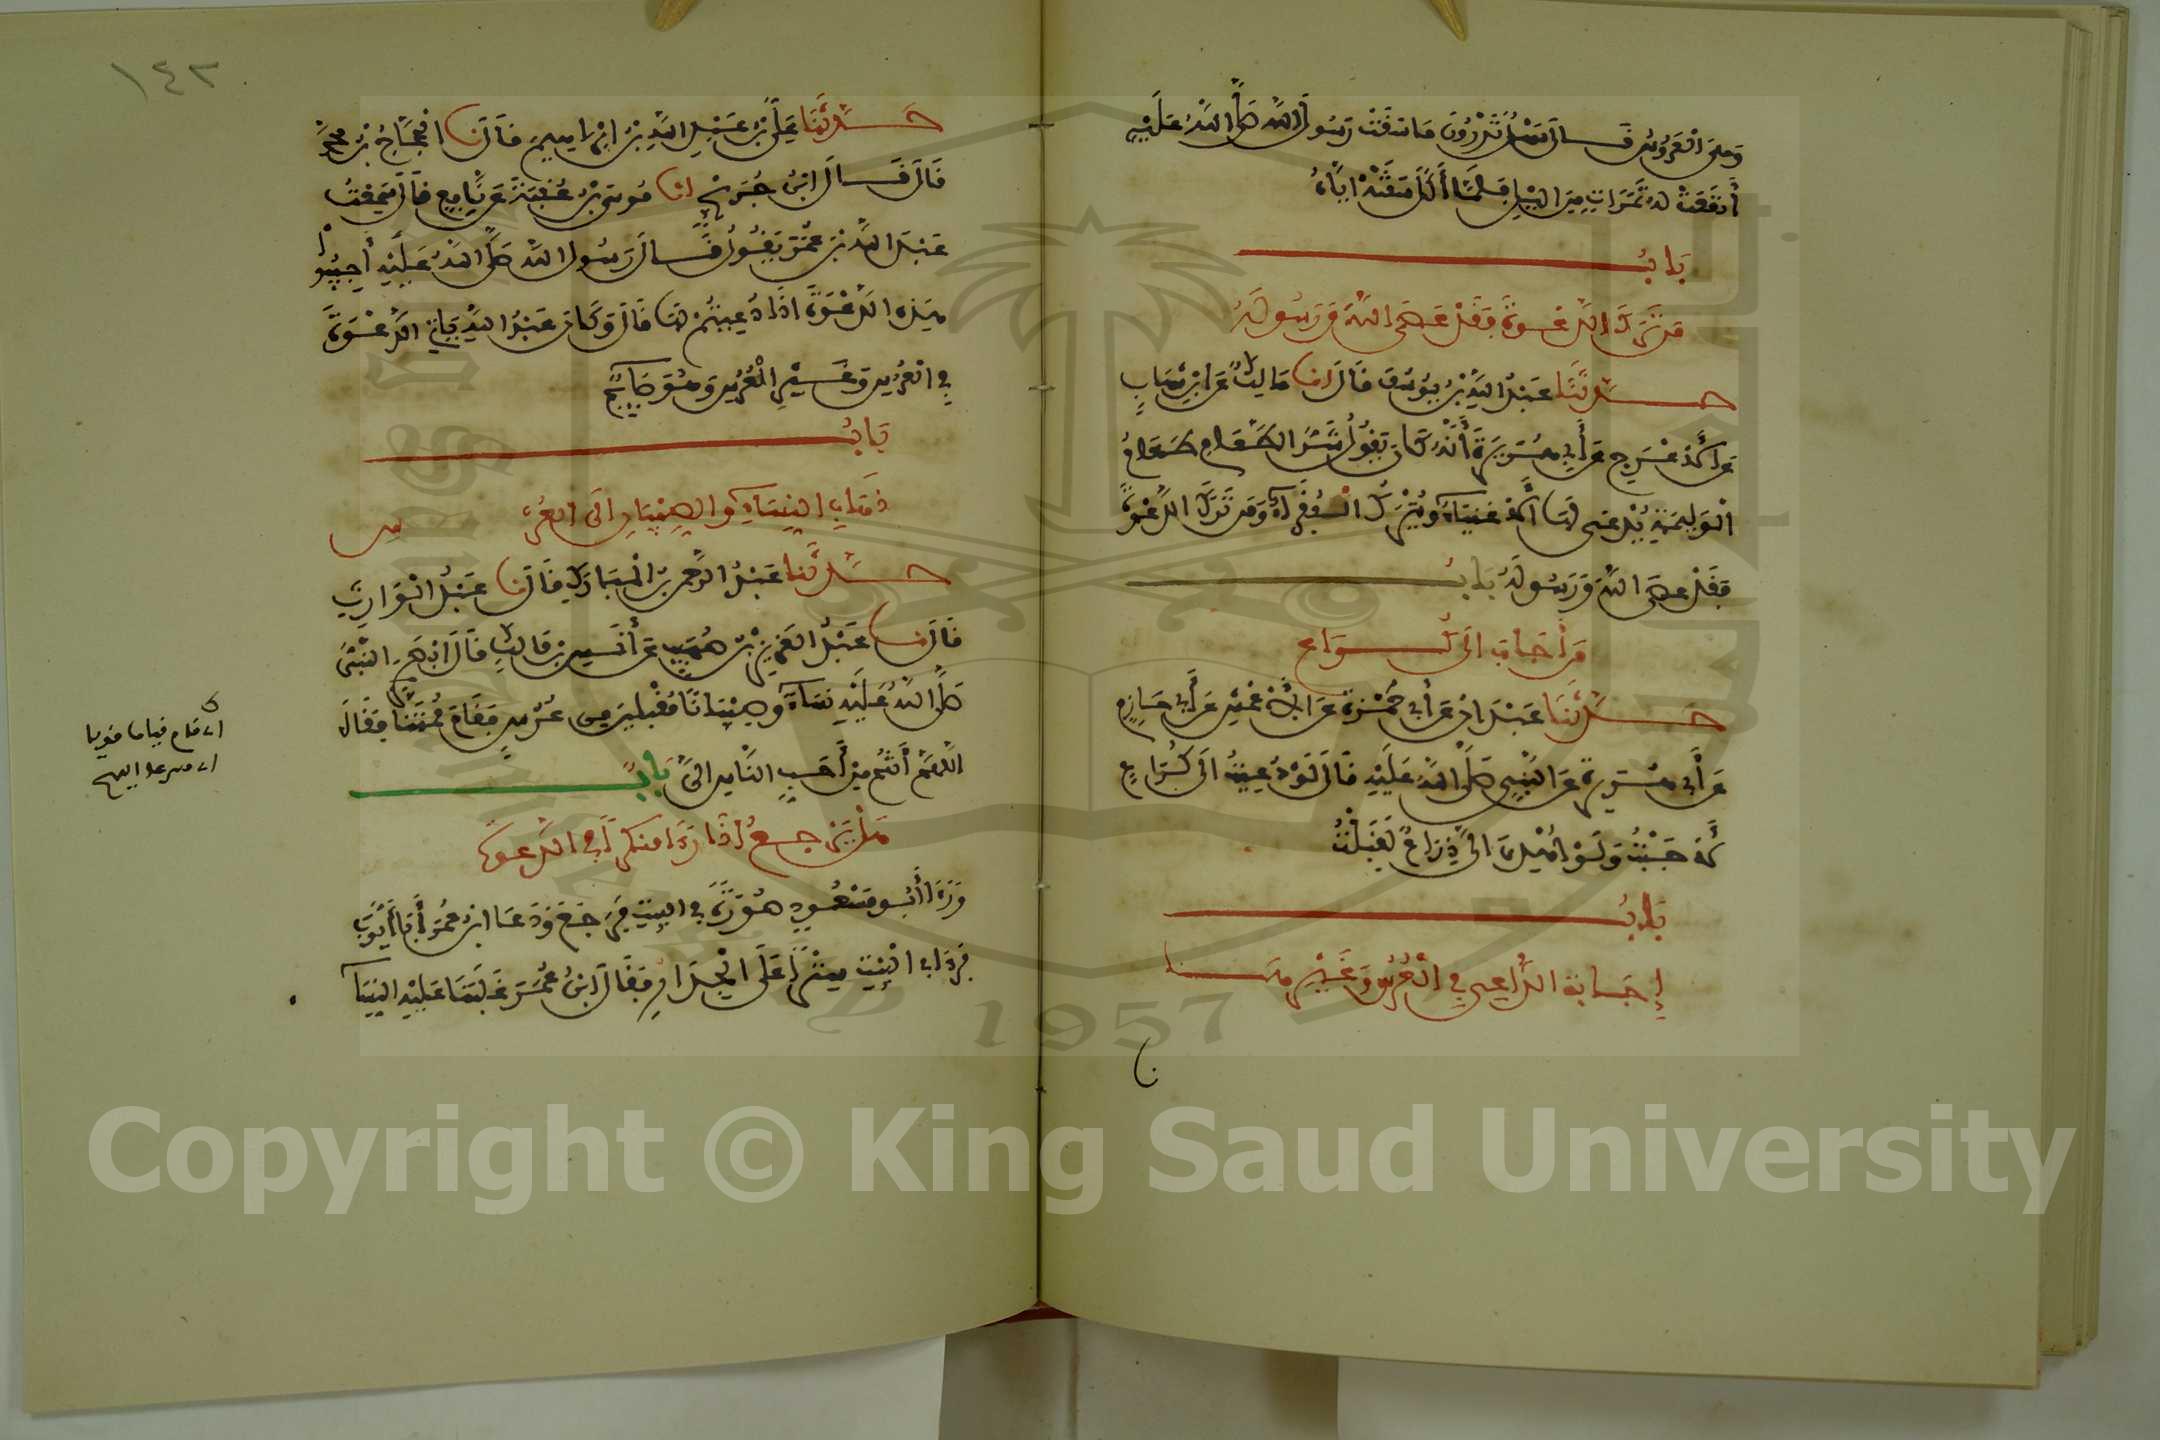 وهى العروس قال سهل تدرون ما سقت رسول الله صلى الله عليه
أنقعت له تمرات من الليل فلما أكل سقته اياه
باب
من ترك الدعوة فقد عصى الله ورسوله
حدثنا عبد الله بن يوسف قال انا مالك عن ابن شهاب
عن الاعرج عن أبي هريرة أنه كان يقول شر الطعام طعام
الوليمة يدعى لها الاغنياء ويترك الفقراء ومن ترك الدعوة
فقد عصى الله ورسوله باب
من أجاب الى كراع
حدثنا عبدان عن أبي حمزة عن الاعمش عن أبي حازم
عن أبي هريرة عن النبي صلى الله عليه قال لو دعيت الى كراع
لاجبت ولو اهدي الي ذراع لقبلت
باب
إجابة الداعي في العرس وغيرها
١٤٢
حدثنا علي بن عبد الله بن ابراهيم قال نا الحجاج بن محمد
قال قال ابن جريج انا موسى بن عقبة عن نافع قال سمعت
عبد الله بن عمر يقول قال رسول الله صلى الله عليه أجيبوا
هذه الدعوة اذا دعيتم لها قال وكان عبد الله ياتي الدعوة
في العرس وغير العرس وهو صائم
باب
ذهاب النساء والصبيان الى العرس
حدثنا عبد الرحمن بن المبارك قال نا عبد الوارث
قال نا عبد العزيز بن صهيب عن أنس بن مالك قال ابصر النبي
صلى الله عليه نساء وصبيانا مقبلين من عرس فقام ممتنا فقال
اللهم أنتم من أحب الناس الي باب
هل يرجع اذا رءا منكرا في الدعوة
ورءا أبو مسعود صورة في البيت فرجع ودعا ابن عمر أبا أيوب
فرءا في البيت سترا على الجدار فقال ابن عمر غلبنا عليه النساء
اي قام قياما قويا